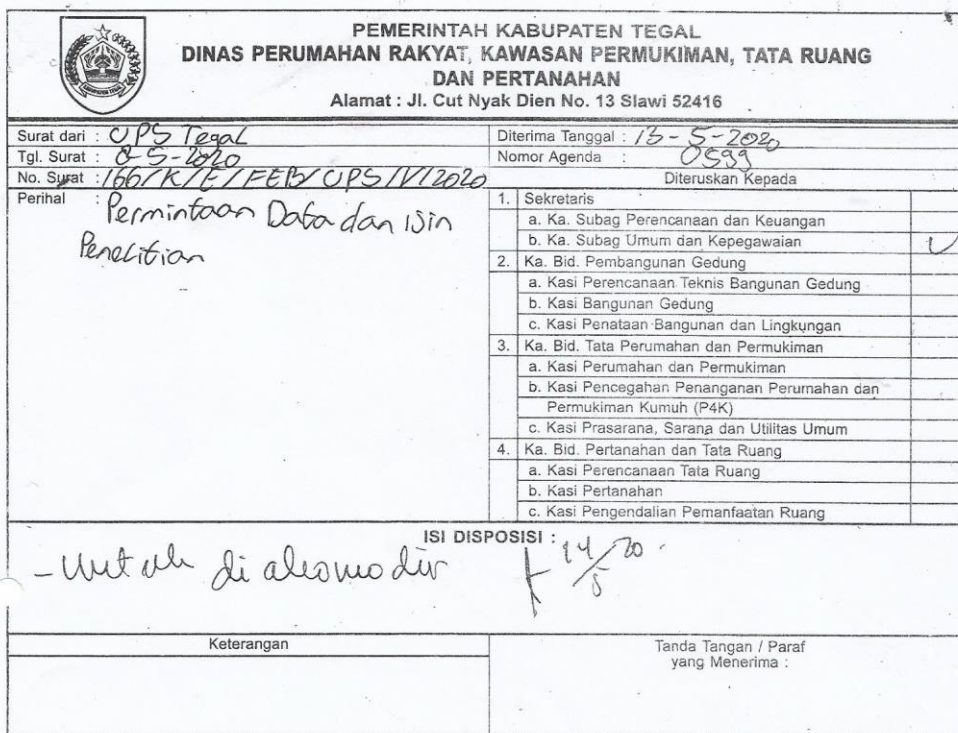 PEMERINTAH KABUPATEN TEGAL
DINAS PERUMAHAN RAKYAT, KAWASAN PERMUKIMAN, TATA RUANG
DAN PERTANAHAN
Alamat : Jl. Cut Nyak Dien No. 13 Slawi 52416
KABUPATEN TEGAL
Surat dari : UPS Tegal
Tgl. Surat : 8-5-2020
No. Surat : 166/K/E/FEB/UPS/V/2020
Perihal : Permintaan Data dan Isin
Penelitian
Diterima Tanggal : 13-5-2020
Nomor Agenda : 0599
Diteruskan Kepada
1. Sekretaris
a. Ka. Subag Perencanaan dan Keuangan
b. Ka. Subag Umum dan Kepegawaian
2. Ka. Bid. Pembangunan Gedung
a. Kasi Perencanaan Teknis Bangunan Gedung
b. Kasi Bangunan Gedung
c. Kasi Penataan Bangunan dan Lingkungan
3. Ka. Bid. Tata Perumahan dan Permukiman
a. Kasi Perumahan dan Permukiman
b. Kasi Pencegahan Penanganan Perumahan dan
Permukiman Kumuh (P4K)
c. Kasi Prasarana, Sarana dan Utilitas Umum
4. Ka. Bid. Pertanahan dan Tata Ruang
a. Kasi Perencanaan Tata Ruang
b. Kasi Pertanahan
c. Kasi Pengendalian Pemanfaatan Ruang
ISI DISPOSISI :
- Untuk di akomodir 14/5 20.
Keterangan
Tanda Tangan / Paraf
yang Menerima :